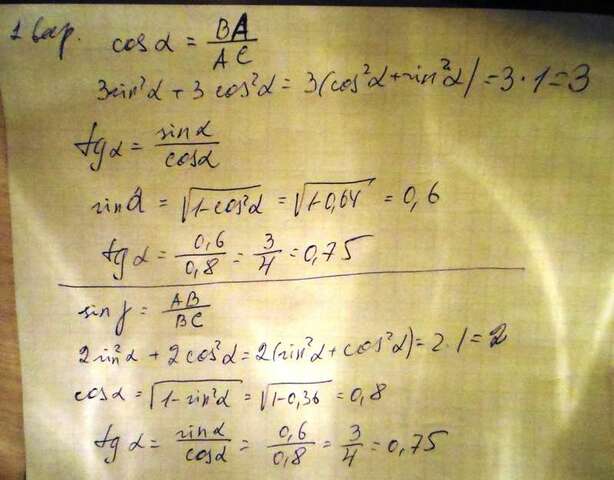 1 вар.
cos α = BA/AC
3sin²α + 3cos²α = 3(cos²α + sin²α) = 3·1 = 3
tg α = sin α/cos α
sin α = √(1-cos²α) = √(1-0,64) = 0,6
tg α = 0,6/0,8 = 3/4 = 0,75
sin f = AB/BC
2sin²α + 2cos²α = 2(sin²α + cos²α) = 2·1 = 2
cos α = √(1-sin²α) = √(1-0,36) = 0,8
tg α = sin α/cos α = 0,6/0,8 = 3/4 = 0,75